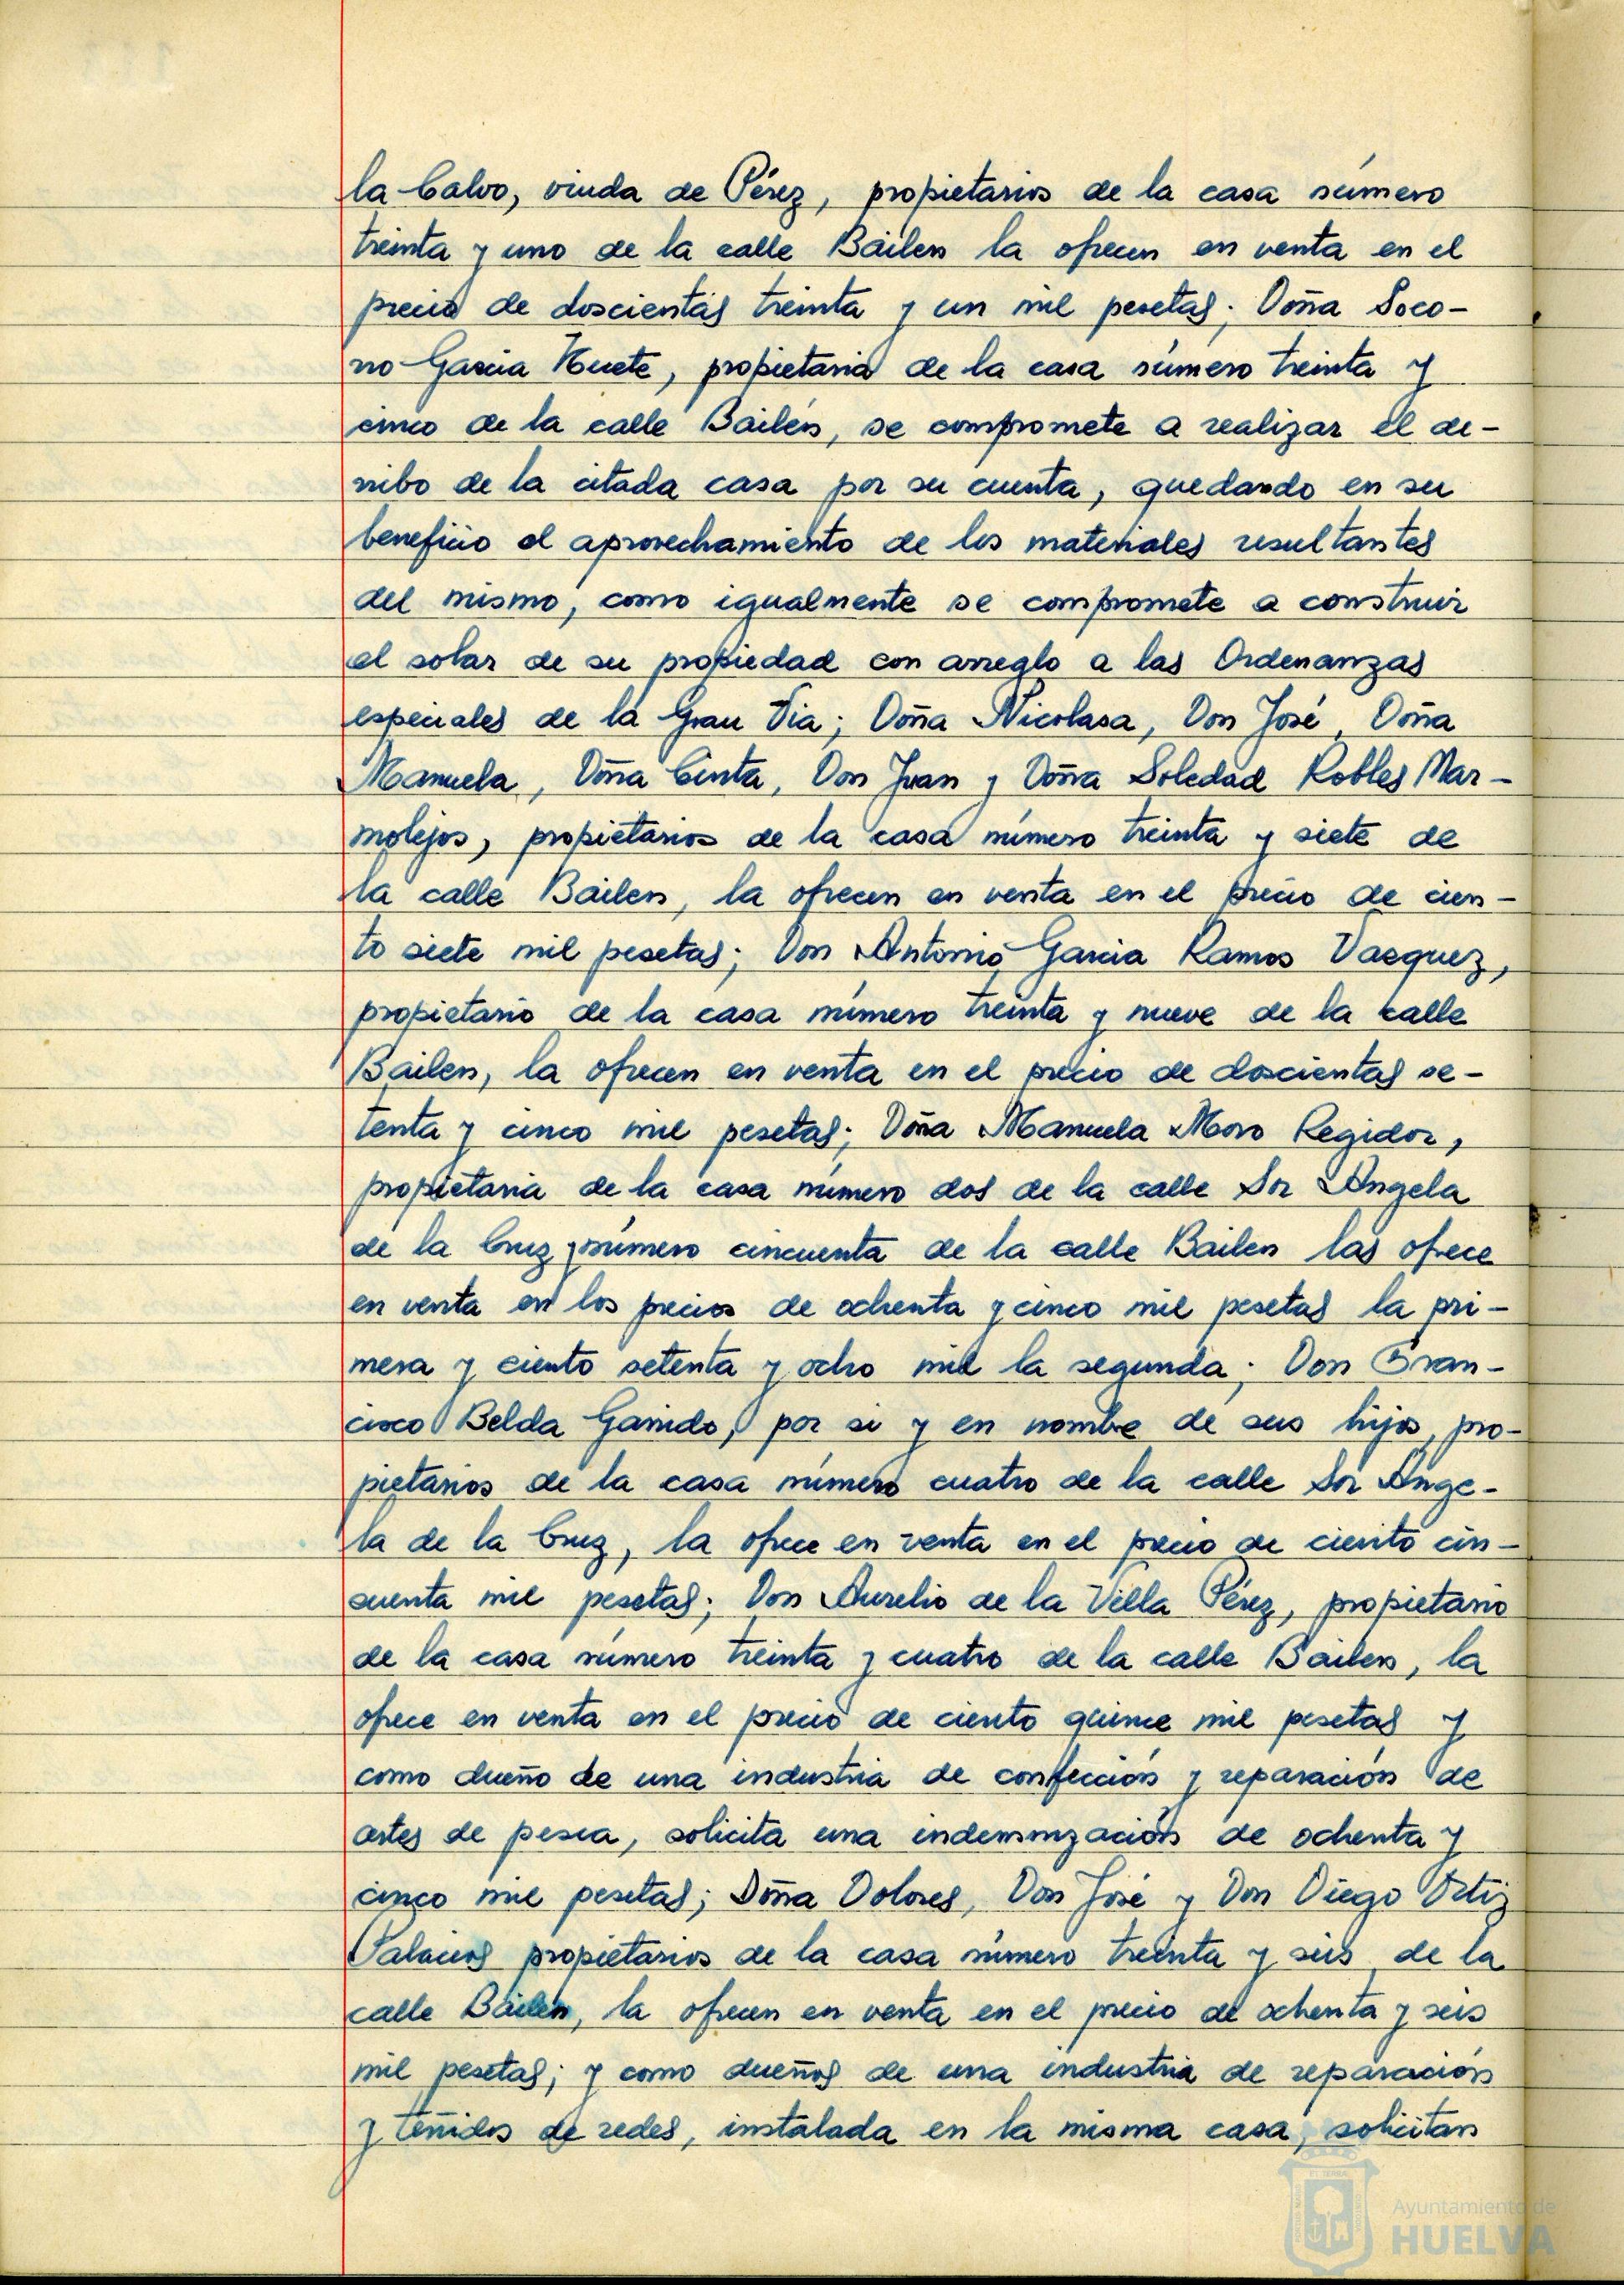 la Calvo, viuda de Pérez, propietarios de la casa número
treinta y uno de la calle Bailen la ofrecen en venta en el
precio de doscientas treinta y un mil pesetas; Doña Soco-
rro Garcia Huete, propietaria de la casa número treinta y
cinco de la calle Bailén, se compromete a realizar el de-
rribo de la citada casa por su cuenta, quedando en su
beneficio el aprovechamiento de los materiales resultantes
del mismo, como igualmente se compromete a construir
el solar de su propiedad con arreglo a las Ordenanzas
especiales de la Gran Via; Doña Nicolasa, Don José, Doña
Manuela, Doña Cinta, Don Juan y Doña Soledad Robles Mar-
molejos, propietarios de la casa número treinta y siete de
la calle Bailen, la ofrecen en venta en el precio de cien-
to siete mil pesetas; Don Antonio Garcia Ramos Vazquez,
propietario de la casa número treinta y nueve de la calle
Bailen, la ofrecen en venta en el precio de doscientas se-
tenta y cinco mil pesetas; Doña Manuela Moro Regidor,
propietaria de la casa número dos de la calle Sor Angela
de la Cruz y número cincuenta de la calle Bailen las ofrece
en venta en los precios de ochenta y cinco mil pesetas la pri-
mera y ciento setenta y ocho mil la segunda; Don Fran-
cisco Belda Garrido, por si y en nombre de sus hijos, pro-
pietarios de la casa número cuatro de la calle Sor Ange-
la de la Cruz, la ofrece en venta en el precio de ciento cin-
cuenta mil pesetas; Don Aurelio de la Villa Pérez, propietario
de la casa número treinta y cuatro de la calle Bailen, la
ofrece en venta en el precio de ciento quince mil pesetas y
como dueño de una industria de confección y reparación de
artes de pesca, solicita una indemnización de ochenta y
cinco mil pesetas; Doña Dolores, Don José y Don Diego Ortiz
Palacios propietarios de la casa número treinta y seis de la
calle Bailen, la ofrecen en venta en el precio de ochenta y seis
mil pesetas; y como dueños de una industria de reparación
y teñidos de redes, instalada en la misma casa, solicitan
Ayuntamiento de
HUELVA